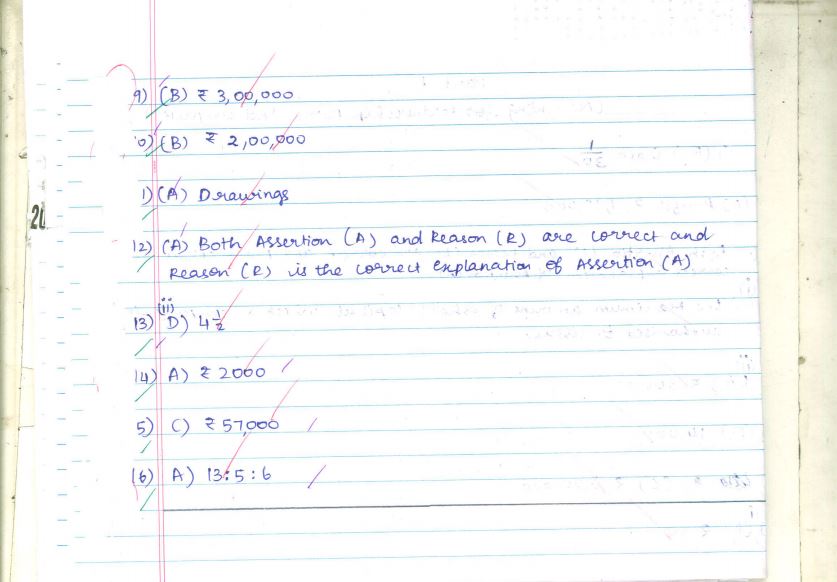 9) (B) ₹ 3,00,000
0) (B) ₹ 2,00,000
1) (A) Drawings
12) (A) Both Assertion (A) and Reason (R) are correct and
Reason (R) is the correct explanation of Assertion (A)
(ii)
13) D) 4 1/2
14) A) ₹ 2000
5) C) ₹ 57,000
(6) A) 13:5:6
20